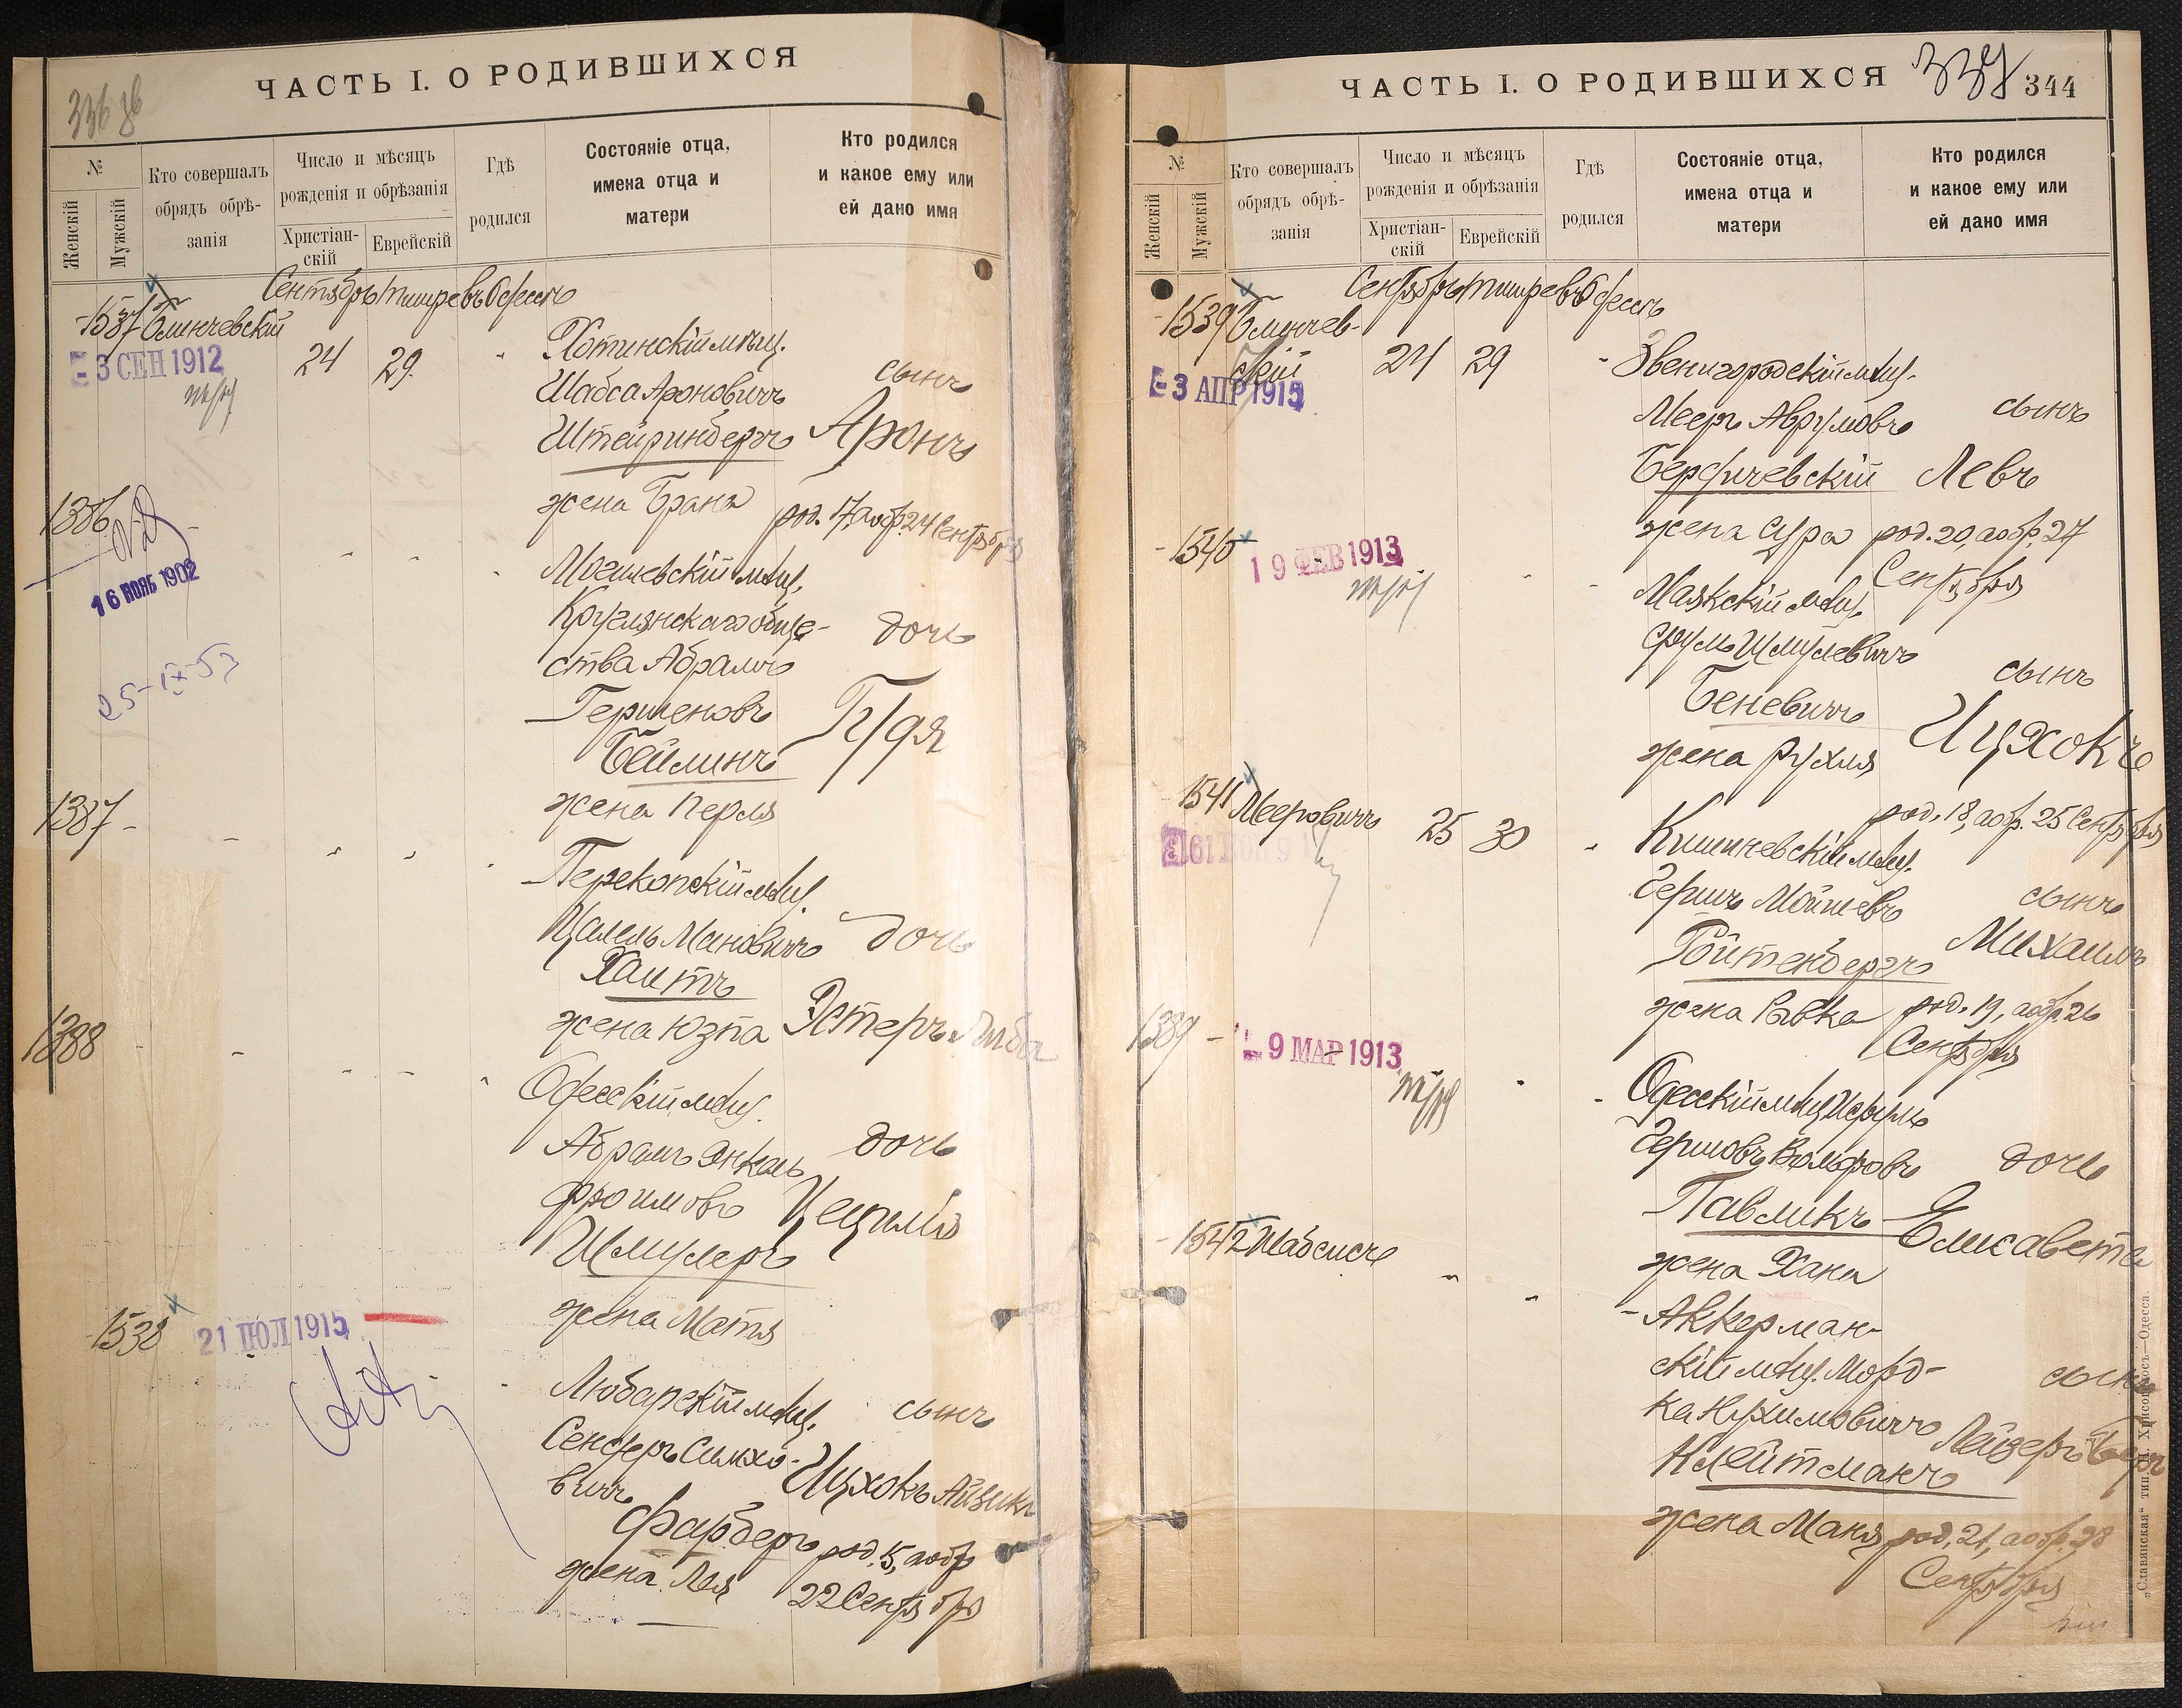 336 об
ЧАСТЬ I. О РОДИВШИХСЯ
№
Женскій
Мужскій
Кто совершалъ
обрядъ обрѣ-
занія
Число и мѣсяцъ
рожденія и обрѣзанія
Христіан-
скій
Еврейскій
Гдѣ
родился
Состояніе отца,
имена отца и
матери
Кто родился
и какое ему или
ей дано имя
Сентябрь Тишре въ Одессѣ
1537 Блинчевскій
3 СЕН 1912
24 29
Хотинскій мѣщ.
Шабса Ароновичъ сынъ
Штейринбергъ Аронъ
жена Брана род. 17, а обр. 24 Сентября
1386
16 НОЯБ 1902
25-IX-53
Могилевскій мѣщ.
Круглянскаго обще- дочь
ства Абрамъ
Гершеновъ
Бейлинъ
жена Перля
1387
Перекопскій мѣщ.
Мановичъ дочь
Хаитъ
жена Юзпа Эстеръ Либа
1388
Одесскій мѣщ.
Абрамъ Янкель дочь
Фроимовъ Цецилія
Шмулеръ
жена Матя
1538
21 ІЮЛ 1915
Любарскій мѣщ. сынъ
Сендеръ Симхо-
вичъ Ицхокъ Айзикъ
Фарберъ род. 15, а обр
жена Лея 22 Сентября
ЧАСТЬ I. О РОДИВШИХСЯ
337
344
№
Женскій
Мужскій
Кто совершалъ
обрядъ обрѣ-
занія
Число и мѣсяцъ
рожденія и обрѣзанія
Христіан-
скій
Еврейскій
Гдѣ
родился
Состояніе отца,
имена отца и
матери
Кто родился
и какое ему или
ей дано имя
Сентябрь Тишре въ Одессѣ
1539 Блинчев-
скій
3 АПР 1915
24 29
Звенигородскій мѣщ.
Мееръ Аврумовъ сынъ
Бердичевскій Левъ
жена Сура род. 20, а обр. 27
Сентября
1540
19 ФЕВ 1913
Маякскій мѣщ.
Срулъ Шмулевичъ сынъ
Беневичъ
Ицхокъ
жена Рухля
род. 18, а обр. 25 Сентября
1541 Мееровичъ 25 30
Кишиневскій мѣщ.
Гершъ Мойшевъ сынъ
Ройтенбергъ Михаилъ
жена Ривка род. 19, а обр. 26
Сентября
1389
9 МАР 1913
Одесскій мѣщ.
Гершовъ Вольфовъ дочь
Павликъ Елисавета
жена Хана
1542 Шабсисъ
Аккерман-
скій мѣщ. Морд-
сынъ
ка Нухимовичъ Лейзеръ Беръ
Клейтманъ
жена Маня род. 21, а обр. 28
Сентября
„Славянская“ тип. Н. Хрисогелосъ—Одесса.